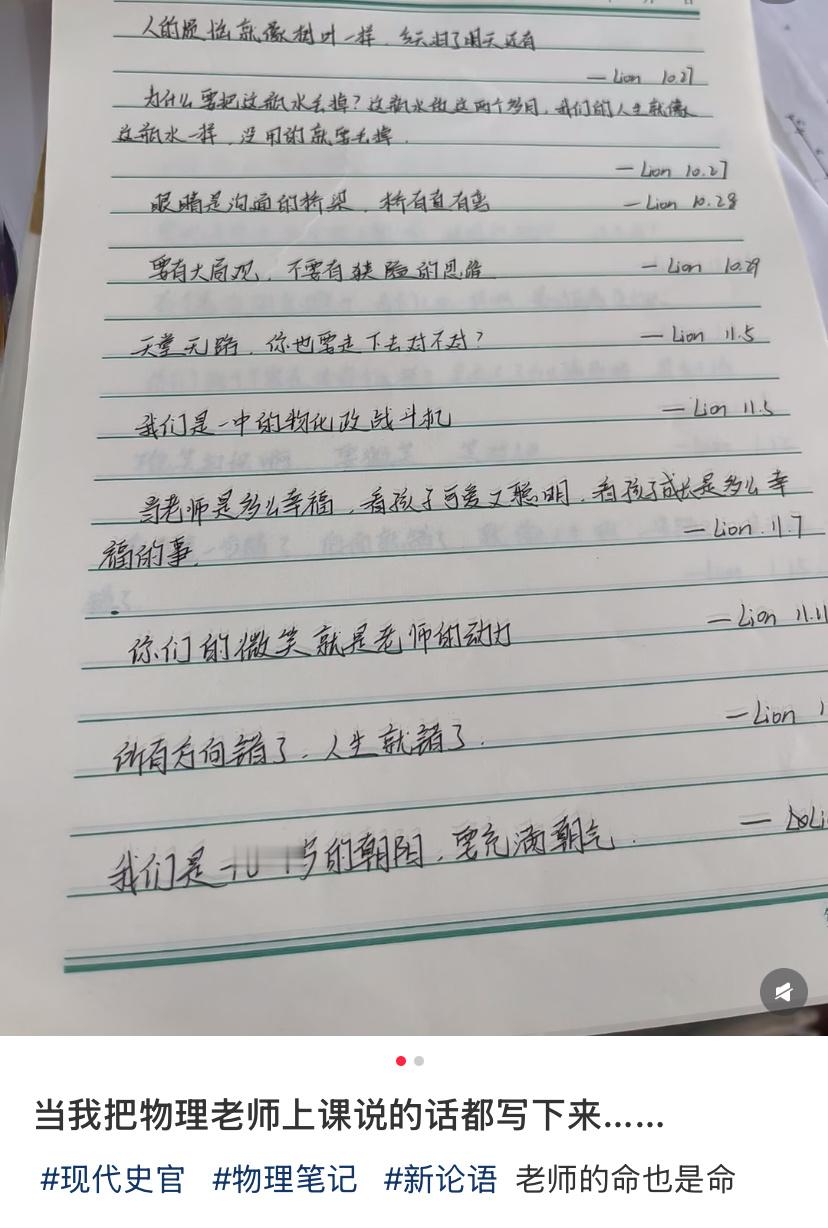 人的烦恼就像树叶一样，今天扫了明天还有
—Lion 10.27
为什么要把这瓶水丢掉？这瓶水放这两个多月，我们的人生就像
这瓶水一样，没用的就要丢掉．
—Lion 10.27
眼睛是沟通的桥梁，桥有直有弯 —Lion 10.28
要有大局观，不要有狭隘的思路 —Lion 10.29
天堂无路，你也要走下去对不对？ —Lion 11.5
我们是一中的物化政战斗机 —Lion 11.5
当老师是多么幸福，看孩子可爱又聪明，看孩子成长是多么幸
福的事． —Lion.11.7
你们的微笑就是老师的动力 —Lion 11.11
所有方向错了．人生就错了． —Lion 1
我们是 的朝阳，要充满朝气． —
当我把物理老师上课说的话都写下来……
#现代史官 #物理笔记 #新论语 老师的命也是命